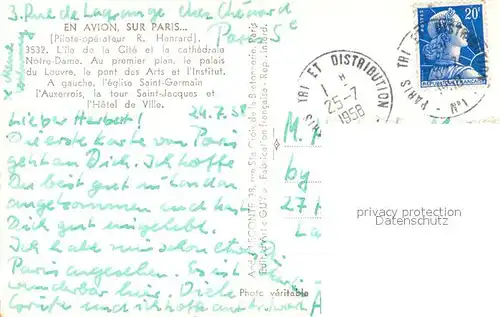 3. Rue de Lagrange chez Chénard
Paris 5e
EN AVION, SUR PARIS...
[Pilote-opérateur R. Henrard].
3532. L'île de la Cité et la cathédrale
Notre-Dame. Au premier plan, le palais
du Louvre, le pont des Arts et l'Institut.
A gauche, l'église Saint-Germain
l'Auxerrois, la tour Saint-Jacques et
l'Hôtel de Ville.
Lieber Herbert! 24.7.58
Die erste Karte von Paris
geht an Dich. Ich hoffe
Du bist gut in London
angekommen und hast
Dich gut eingelebt.
Ich habe mir schon etwas
Paris angesehen. Es ist
wunderbar hier. Viele
Grüße und ich hoffe auf Antwort
Photo véritable
Fabrication française - Rep. Interdi.
TRI ET DISTRIBUTION
1 H
25-7
1958
PARIS TRI
N°1
20F
REPUBLIQUE FRANÇAISE
M.
by
27
privacy protection
Datenschutz